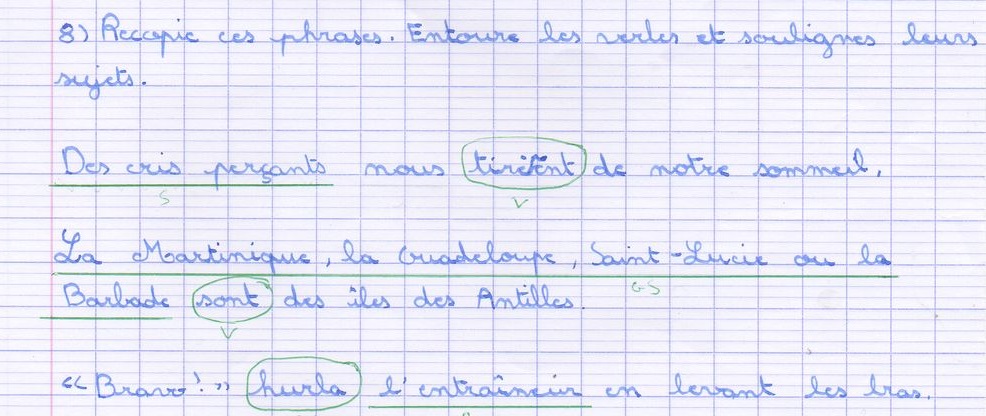 8) Recopie ces phrases. Entoure les verbes et soulignes leurs
sujets.
Des cris perçants nous tirèrent de notre sommeil.
S V
La Martinique, la Guadeloupe, Saint-Lucie ou la
GS
Barbade sont des îles des Antilles.
V
« Bravo! » hurla l'entraîneur en levant les bras.